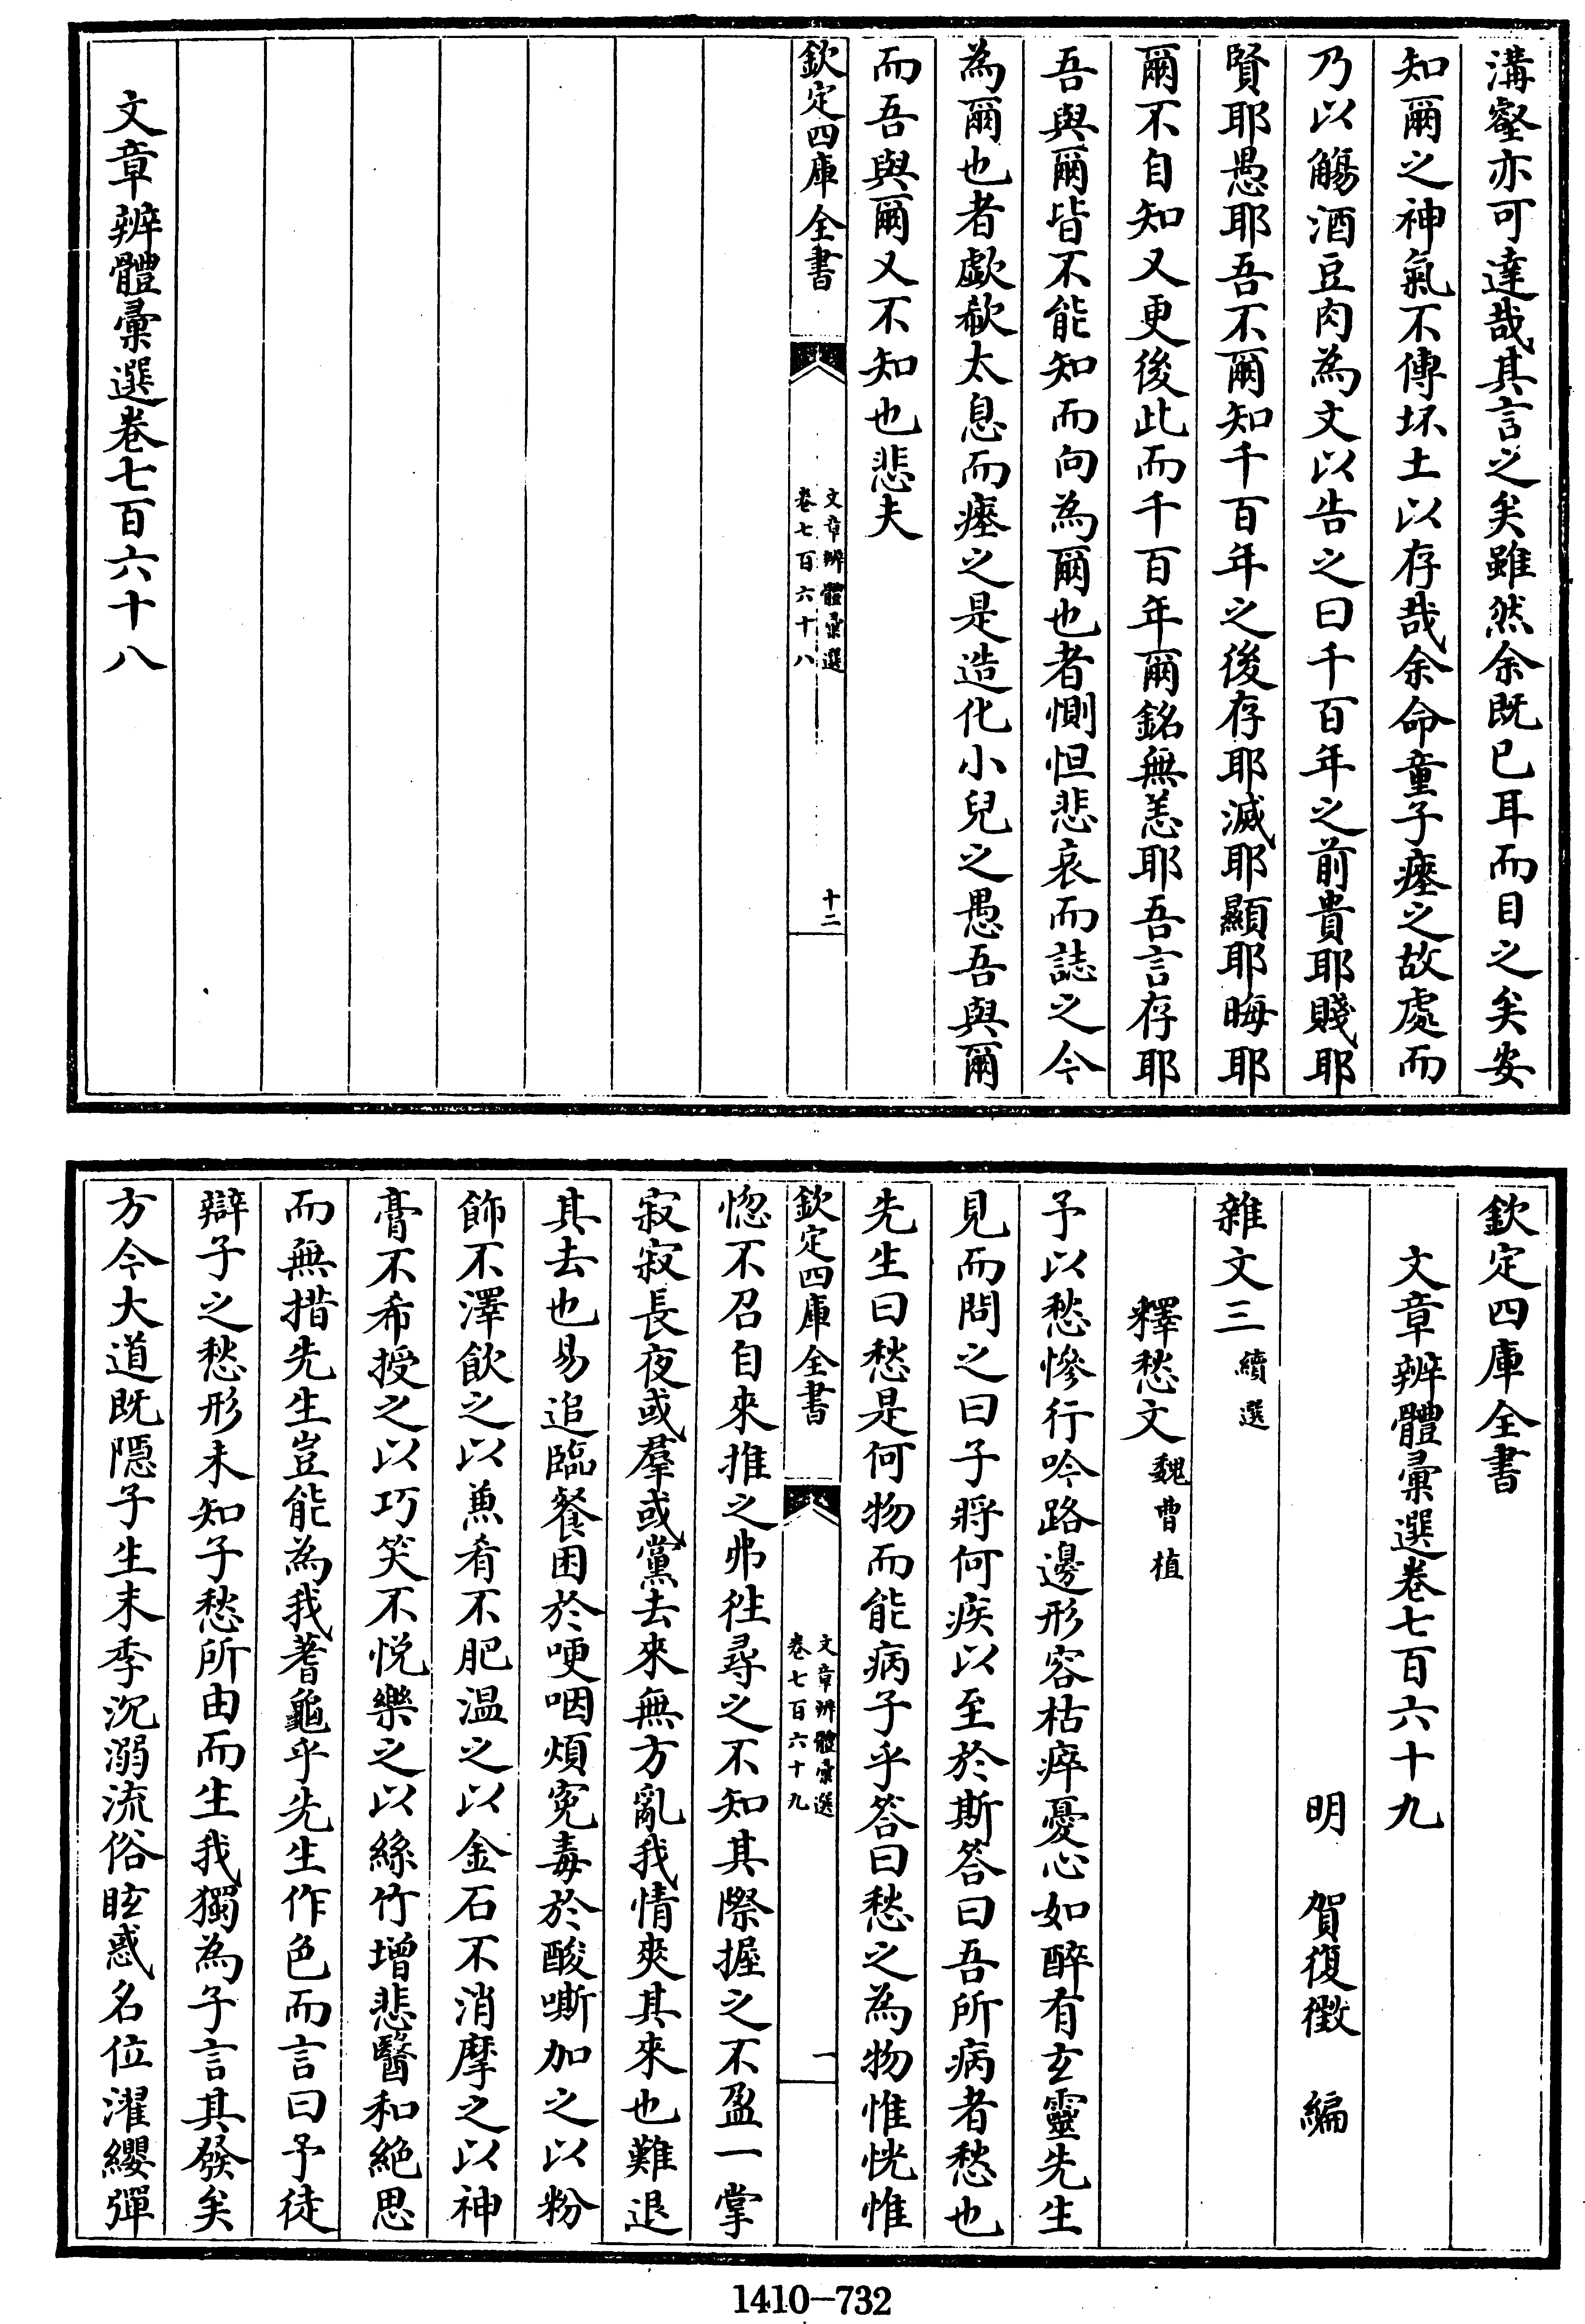 溝壑亦可達哉其言之矣雖然余既已耳而目之矣安
知爾之神氣不傳坏土以存哉余命童子瘞之故處而
乃以觴酒豆肉為文以告之曰千百年之前貴耶賤耶
賢耶愚耶吾不爾知千百年之後存耶滅耶顯耶晦耶
爾不自知又更後此而千百年爾銘無恙耶吾言存耶
吾與爾皆不能知而向為爾也者惻怛悲哀而誌之今
為爾也者歔欷太息而瘞之是造化小兒之愚吾與爾
而吾與爾又不知也悲夫
欽定四庫全書
文章辨體彙選
卷七百六十八
十二
文章辨體彙選卷七百六十八
欽定四庫全書
文章辨體彙選卷七百六十九
明 賀復徵 編
雜文三續選
釋愁文魏曹植
予以愁慘行吟路邊形容枯瘁憂心如醉有玄靈先生
見而問之曰子將何疾以至於斯答曰吾所病者愁也
先生曰愁是何物而能病子乎答曰愁之為物惟恍惟
欽定四庫全書
文章辨體彙選
卷七百六十九
一
惚不召自來推之弗往尋之不知其際握之不盈一掌
寂寂長夜或羣或黨去來無方亂我情爽其來也難退
其去也易追臨餐困於哽咽煩寃毒於酸嘶加之以粉
飾不澤飲之以兼肴不肥温之以金石不消摩之以神
膏不希授之以巧笑不悅樂之以絲竹增悲醫和絶思
而無措先生豈能為我蓍龜乎先生作色而言曰予徒
辯子之愁形未知子愁所由而生我獨為子言其發矣
方今大道既隱子生末季沉溺流俗眩惑名位濯纓彈
1410-732